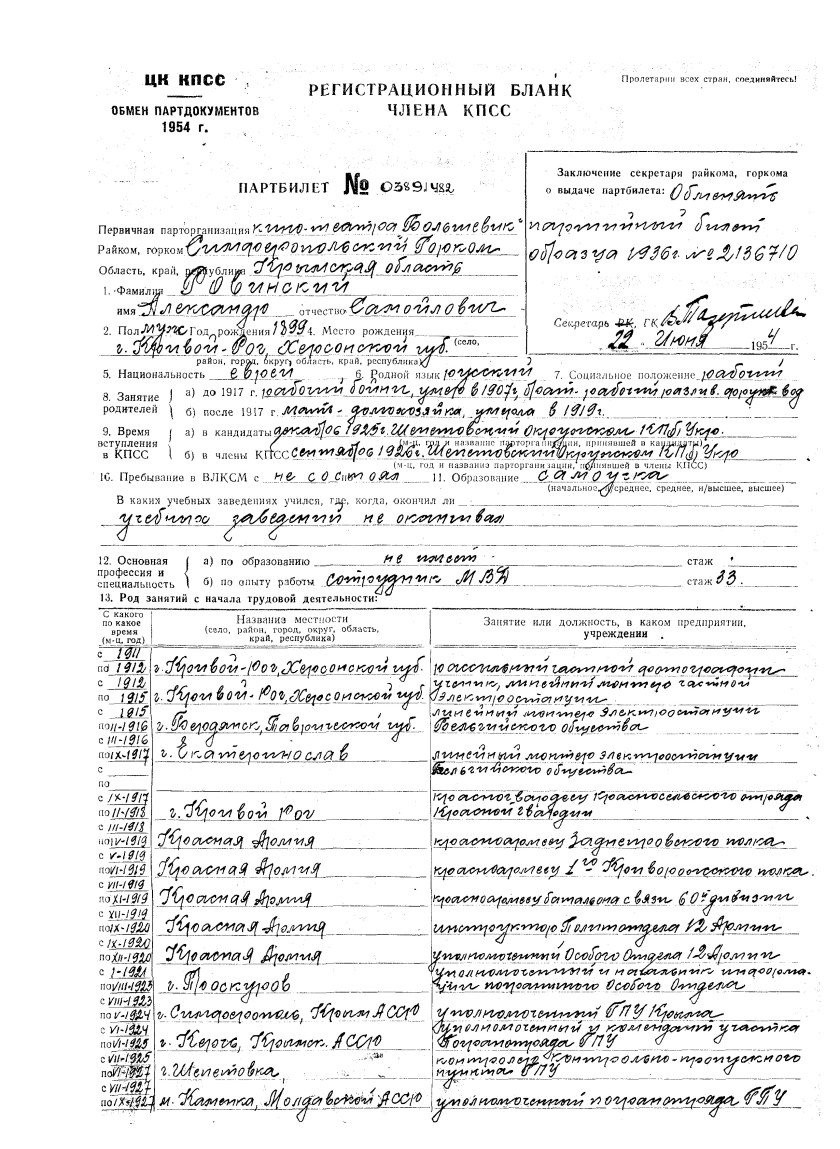 ЦК КПСС
ОБМЕН ПАРТДОКУМЕНТОВ
1954 г.
РЕГИСТРАЦИОННЫЙ БЛАНК
ЧЛЕНА КПСС
Пролетарии всех стран, соединяйтесь!
ПАРТБИЛЕТ № 03891482
Заключение секретаря райкома, горкома
о выдаче партбилета: Обменять
партийный билет
образца 1936г. №2136710
Секретарь РК, ГК
22 Июня 1954 г.
Первичная парторганизация кино-театра Большевик"
Райком, горком Симферопольский Горком
Область, край, республика Крымская область
1. Фамилия РОВИНСКИЙ
имя Александр отчество Самойлович
2. Пол муж Год рождения 1899 4. Место рождения
г. Кривой-Рог, Херсонской губ. (село,
район, город, округ, область, край, республика)
5. Национальность еврей 6. Родной язык русский 7. Социальное положение рабочий
8. Занятие родителей
а) до 1917 г. рабочий бойни, умер в 1907г, брат-рабочий разлив. фрукт. вод
б) после 1917 г. мать - домохозяйка, умерла в 1919г.
9. Время вступления в КПСС
а) в кандидаты декабрь 1925г. Шепетовский Окружком КП(б)Укр.
(м-ц, год и название парторганизации, принявшей в кандидаты)
б) в члены КПСС сентябрь 1926г. Шепетовский Окружком КП(б)Укр
(м-ц, год и название парторганизации, принявшей в члены КПСС)
10. Пребывание в ВЛКСМ с не состоял 11. Образование самоучка
(начальное, н/среднее, среднее, н/высшее, высшее)
В каких учебных заведениях учился, где, когда, окончил ли
учебных заведений не оканчивал
12. Основная профессия и специальность
а) по образованию не имеет стаж
б) по опыту работы сотрудник МВД стаж 33.
13. Род занятий с начала трудовой деятельности:
С какого по какое время (м-ц, год)
Название местности
(село, район, город, округ, область,
край, республика)
Занятие или должность, в каком предприятии,
учреждении
с 1911
по 1912 г. Кривой-Рог, Херсонской губ. рассыльный частной фотографии
с 1912 ученик, линейный монтер частной
по 1915 г. Кривой-Рог, Херсонской губ. Электростанции
с 1915 линейный монтер Электростанции
по II-1916 г. Бердянск, Таврической губ. Бельгийского общества
с III-1916
по IX-1917 г. Екатеринослав линейный монтер электростанции
с Бельгийского общества
по
с IX-1917 красногвардеец Красносельского отряда
по II-1918 г. Кривой Рог Красной Гвардии
с III-1918
по IV-1919 Красная Армия красноармеец Заднепровского полка
с V-1919
по VI-1919 Красная Армия красноармеец 1го Криворожского полка.
с VII-1919
по XI-1919 Красная Армия красноармеец батальона связи 60й дивизии
с XII-1919
по IX-1920 Красная Армия инструктор Политотдела 12 Армии
с IX-1920
по XII-1920 Красная Армия уполномоченный Особого Отдела 12 Армии
с I-1921 уполномоченный и начальник информа-
по VIII-1923 г. Проскуров ции пограничного Особого Отдела
с VIII-1923
по V-1924 г. Симферополь, Крым АССР уполномоченный ГПУ Крыма
с VI-1924 Уполномоченный и комендант участка
по VI-1925 г. Керчь, Крымск. АССР Погранотряда ГПУ
с VII-1925 контролер Контрольно-пропускного
по VI-1927 г. Шепетовка, пункта ГПУ
с VII-1927
по IX-1927 м. Каменка, Молдавской АССР уполномоченный погранотряда ГПУ